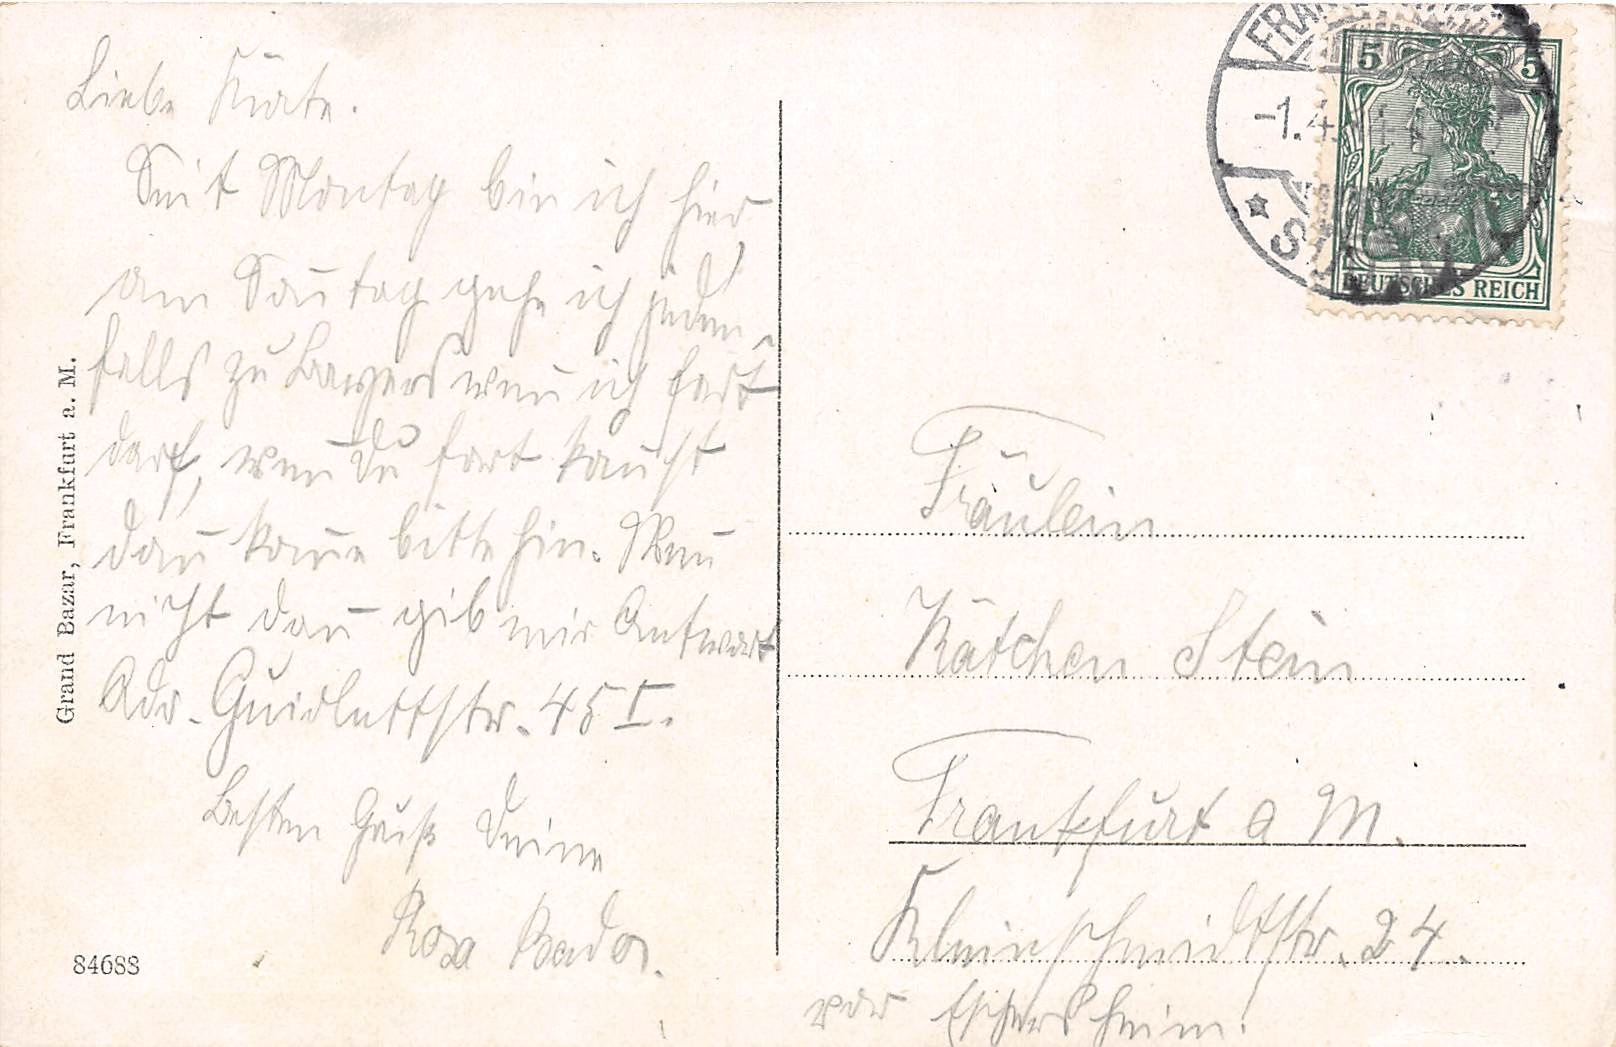 Liebe Käte.
Seit Montag bin ich hier,
am Sontag gehe ich jeden-
falls zu Bayers wen ich fort
darf, wen Du fort kanst
dan kome bitte hin. Wen
nicht dan gib mir Antwort
Adr. Guiolettstr. 45 I.
Besten Gruß Deine
Rosa
Grand Bazar, Frankfurt a. M.
84688
-1.4.
5 5
DEUTSCHES REICH
Fräulein
Kätchen Stein
Frankfurt a M.
Kleinschmidtstr. 24.
vor Eschersheim!